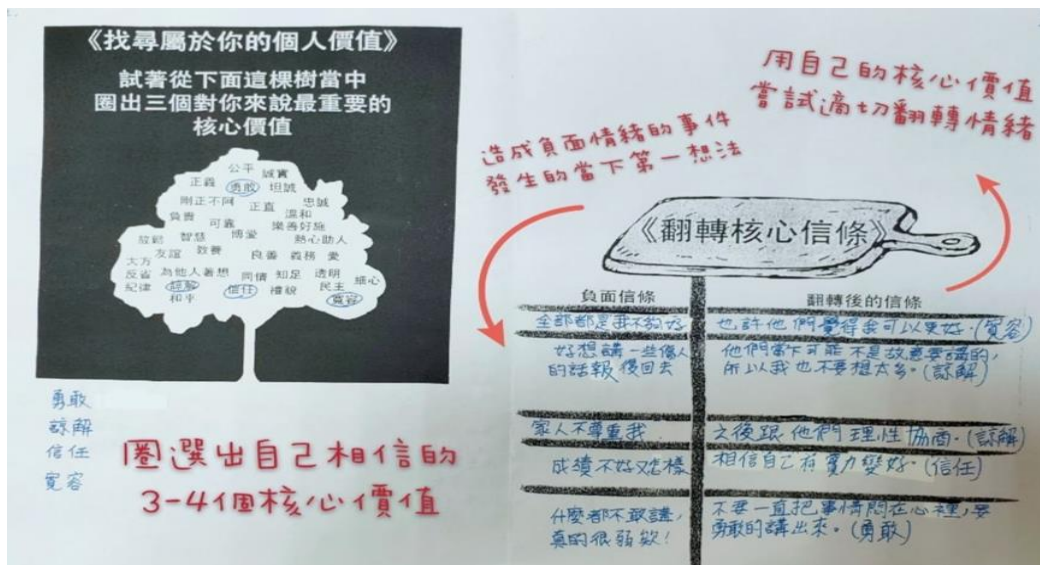 《找尋屬於你的個人價值》
試著從下面這棵樹當中
圈出三個對你來說最重要的
核心價值
公平 誠實
正義 勇敢 坦誠
剛正不阿 正直 忠誠
負責 可靠 溫和
樂善好施
放鬆 智慧 博愛 熱心助人
大方 友誼 教養 良善 義務 愛
反省 為他人著想 同情 知足 透明 細心
紀律 諒解 信任 禮貌 民主 寬容
和平
勇敢
諒解
信任
寬容
圈選出自己相信的
3-4個核心價值
造成負面情緒的事件
發生的當下第一想法
用自己的核心價值
嘗試適切翻轉情緒
《翻轉核心信條》
負面信條 翻轉後的信條
全部都是我不夠好 也許他們覺得我可以更好。(寬容)
好想講一些傷人
的話報復回去
他們當下可能不是故意要講的,
所以我也不要想太多。(諒解)
家人不尊重我 之後跟他們理性協商。(諒解)
成績不好又怎樣 相信自己有實力變好。(信任)
什麼都不敢講,
真的很弱欸!
不要一直把事情悶在心裡,要
勇敢的講出來。(勇敢)